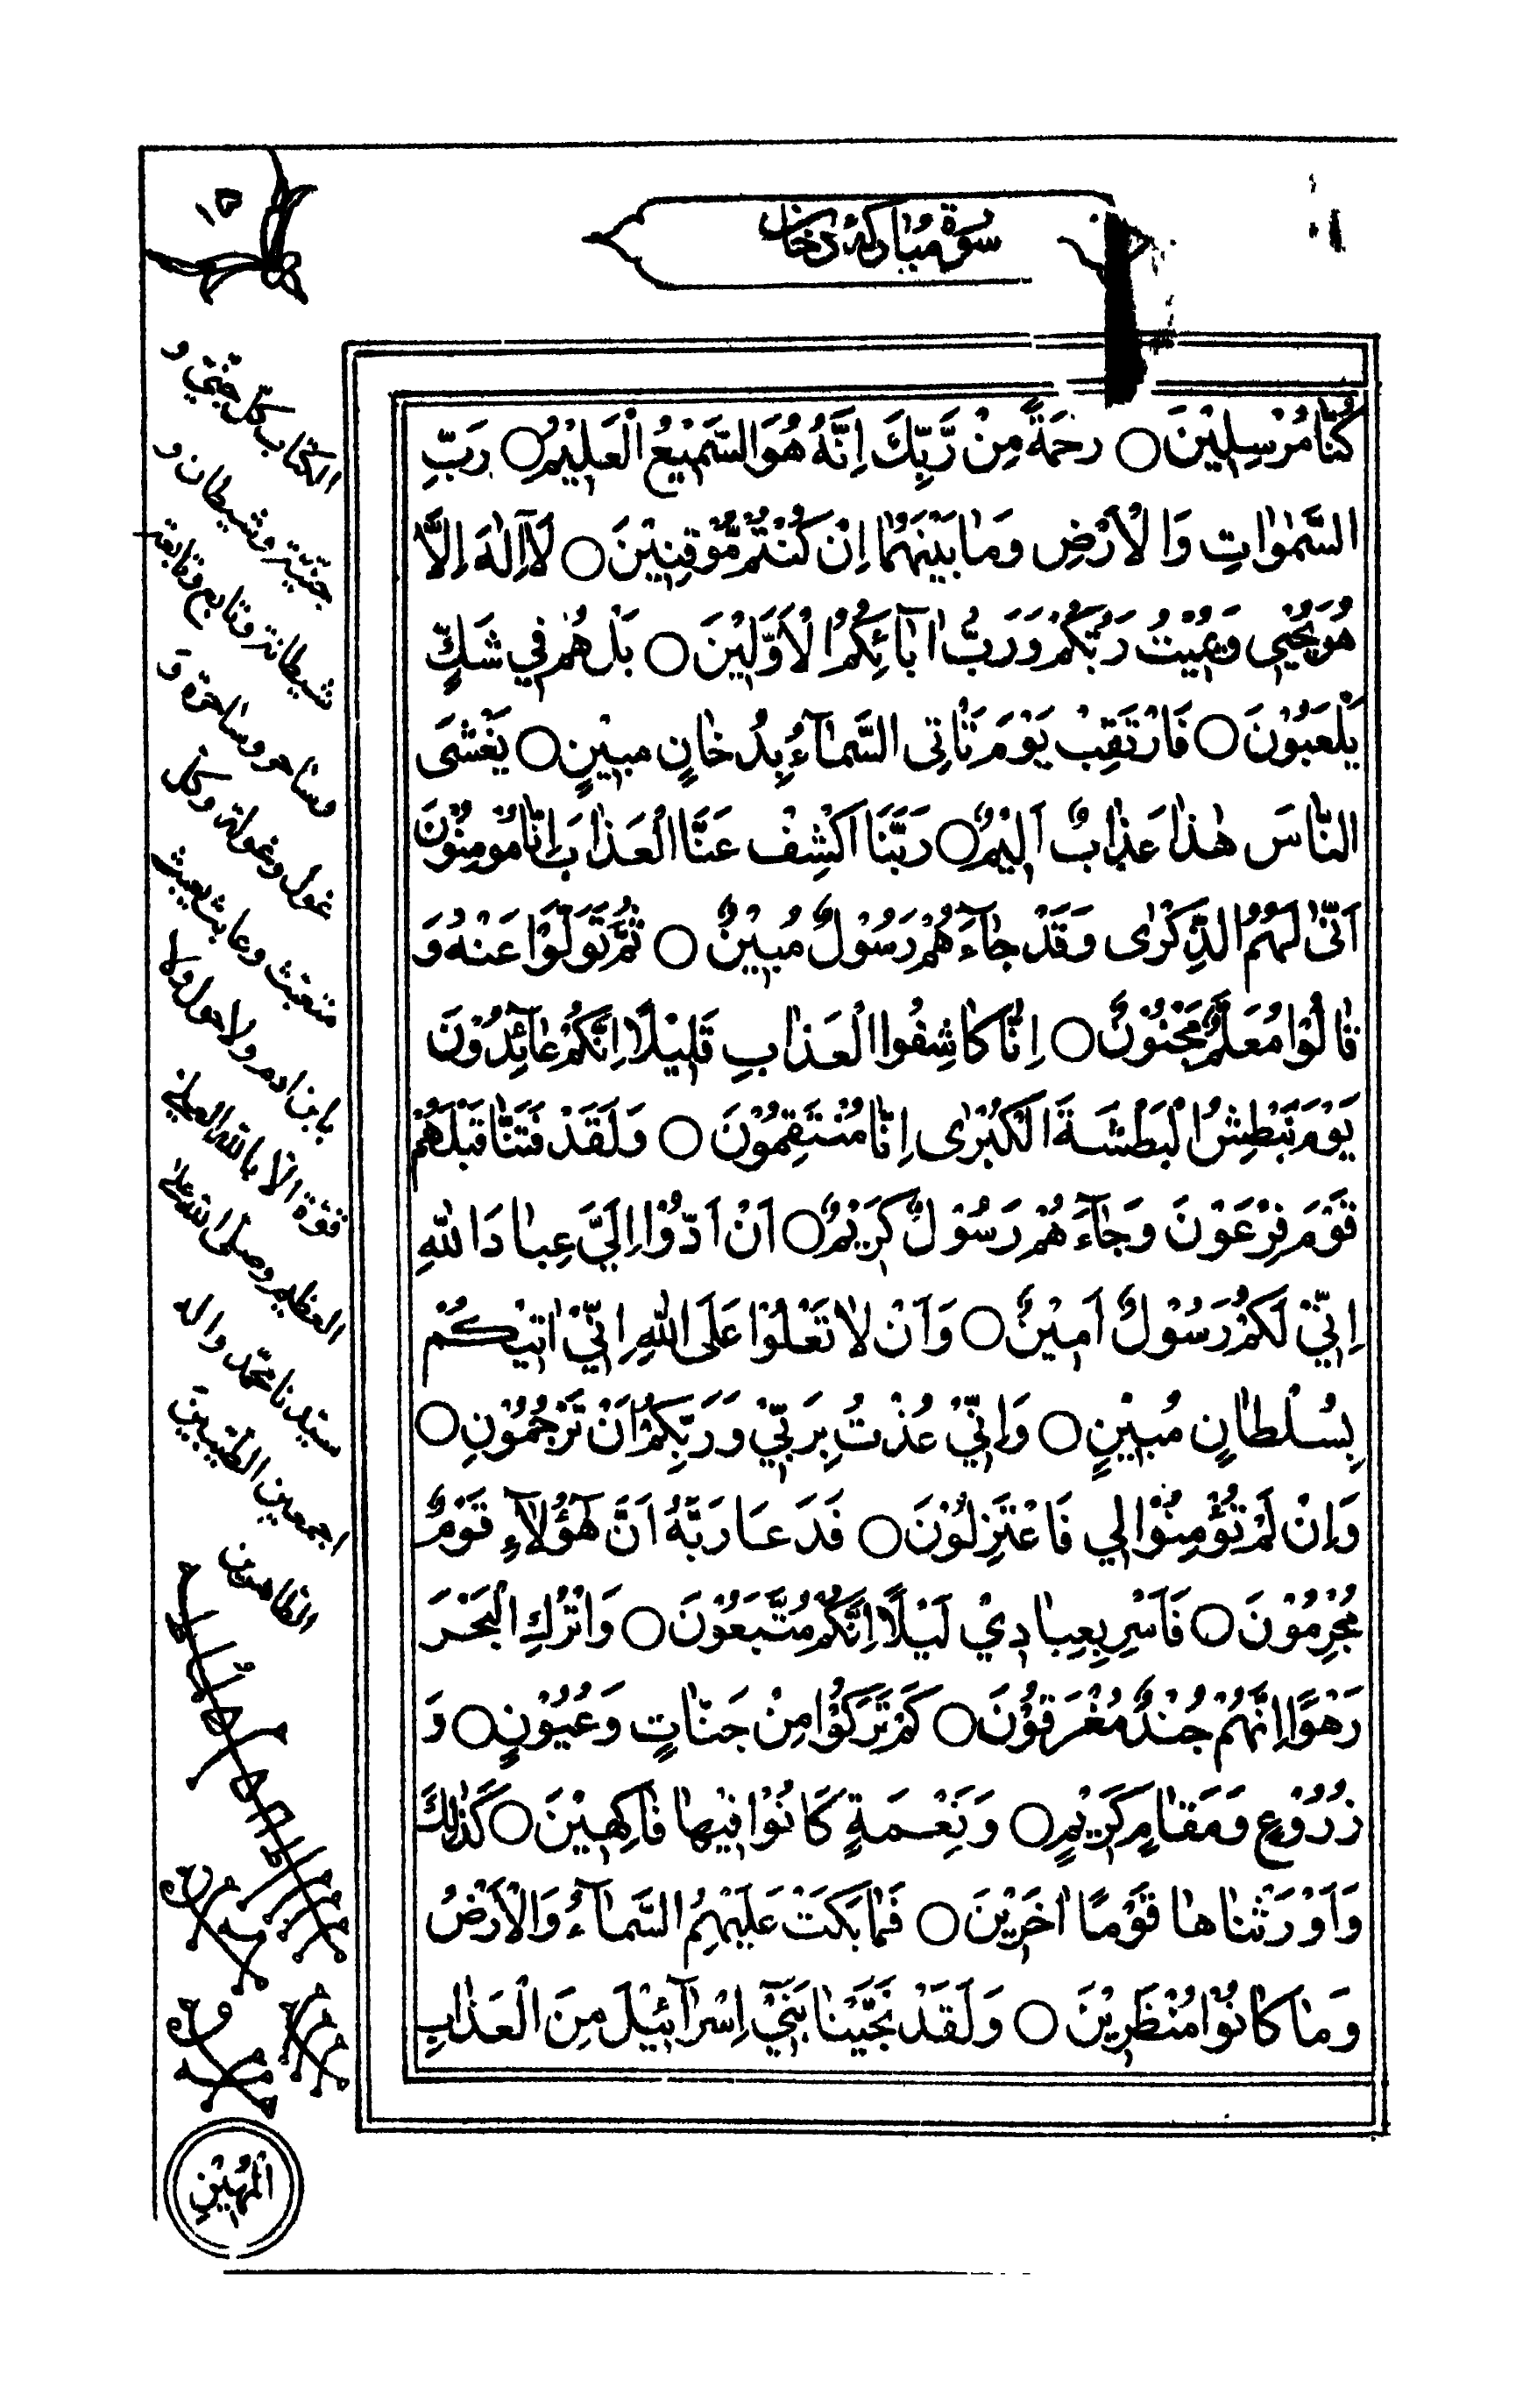 ١٥
سورة مباركهٔ دخان
كُنّٰا مُرْسِلِيْنَ ○ رَحْمَةً مِنْ رَّبِّكَ اِنَّهُ هُوَ السَّمِيْعُ الْعَلِيْمُ ○ رَبِّ
السَّمٰوٰاتِ وَالْاَرْضِ وَمٰا بَيْنَهُمٰا اِنْ كُنْتُمْ مُّوْقِنِيْنَ ○ لَآ اِلٰهَ اِلَّا
هُوَ يُحْيِي وَيُمِيْتُ رَبُّكُمْ وَرَبُّ اٰبٰٓائِكُمُ الْاَوَّلِيْنَ ○ بَلْ هُمْ فِي شَكٍّ
يَلْعَبُوْنَ ○ فَارْتَقِبْ يَوْمَ تَأْتِى السَّمٰٓاءُ بِدُخٰانٍ مبِيْنٍ ○ يَغْشَى
النّٰاسَ هٰذٰا عَذٰابٌ اَلِيْمٌ ○ رَبَّنَا اكْشِفْ عَنَّا الْعَذٰابَ اِنّٰا مُوْمِنُوْنَ
اَنّٰى لَهُمُ الذِّكْرٰى وَقَدْ جٰآءَهُمْ رَسُوْلٌ مُبِيْنٌ ○ ثُمَّ تَوَلَّوْا عَنْهُ وَ
قٰالُوْا مُعَلَّمٌ مَجْنُوْنٌ ○ اِنّٰا كٰاشِفُوا الْعَذٰابِ قَلِيْلًا اِنَّكُمْ عٰٓائِدُوْنَ
يَوْمَ نَبْطِشُ الْبَطْشَةَ الْكُبْرٰى اِنّٰا مُنْتَقِمُوْنَ ○ وَلَقَدْ فَتَنّٰا قَبْلَهُمْ
قَوْمَ فِرْعَوْنَ وَجٰآءَهُمْ رَسُوْلٌ كَرِيْمٌ ○ اَنْ اَدُّوْا اِلَيَّ عِبٰادَ اللهِ
اِنِّيْ لَكُمْ رَسُوْلٌ اَمِيْنٌ ○ وَاَنْ لٰا تَعْلُوْا عَلَى اللهِ اِنِّيْ اٰتِيْكُمْ
بِسُلْطٰانٍ مُبِيْنٍ ○ وَاِنِّيْ عُذْتُ بِرَبِّيْ وَرَبِّكُمْ اَنْ تَرْجُمُوْنِ ○
وَاِنْ لَمْ تُؤْمِنُوْا لِي فَاعْتَزِلُوْنَ ○ فَدَعَا رَبَّهُ اَنَّ هٰٓؤُلٰآءِ قَوْمٌ
مُجْرِمُوْنَ ○ فَاَسْرِ بِعِبٰادِيْ لَيْلًا اِنَّكُمْ مُتَّبَعُوْنَ ○ وَاتْرُكِ الْبَحْرَ
رَهْوًا اِنَّهُمْ جُنْدٌ مُغْرَقُوْنَ ○ كَمْ تَرَكُوْا مِنْ جَنّٰاتٍ وَعُيُوْنٍ ○ وَ
زُرُوْعٍ وَمَقٰامٍ كَرِيْمٍ ○ وَنِعْمَةٍ كٰانُوْا فِيْهٰا فٰاكِهِيْنَ ○ كَذٰلِكَ
وَاَوْرَثْنٰاهٰا قَوْمًا اٰخَرِيْنَ ○ فَمٰا بَكَتْ عَلَيْهِمُ السَّمٰآءُ وَالْاَرْضُ
وَمٰا كٰانُوْا مُنْظَرِيْنَ ○ وَلَقَدْ نَجَّيْنٰا بَنِيْٓ اِسْرٰٓائِيْلَ مِنَ الْعَذٰابِ
الكتاب كلّ جنّي و
جنّيّة وشيطان و
شيطانة وتابع وتابعة
وساحر وساحرة و
غول وغولة وكل
متعبث وعابث يعبث
بابن ادم ولاحول ولا
قوة الّا بالله العلي
العظيم وصلى الله على
سيّدنا محمّد واله
اجمعين الطيّبين
الطاهرين
الْمُهِيْنِ